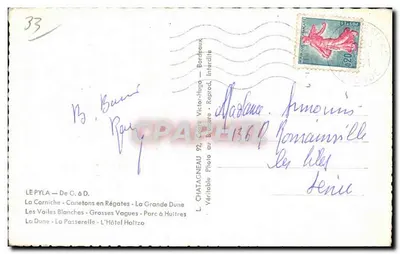 33
0,20
B. Baisé
LE PYLA — De G. à D.
La Corniche - Canetons en Régates - La Grande Dune
Les Voiles Blanches - Grosses Vagues - Parc à Huîtres
La Dune - La Passerelle - L'Hôtel Haitza
L. CHATAGNEAU 92, Victor-Hugo - Bordeaux
Véritable Photo au - Reprod. Interdite
Madame Simonin
Romainville
les Lilas
Seine